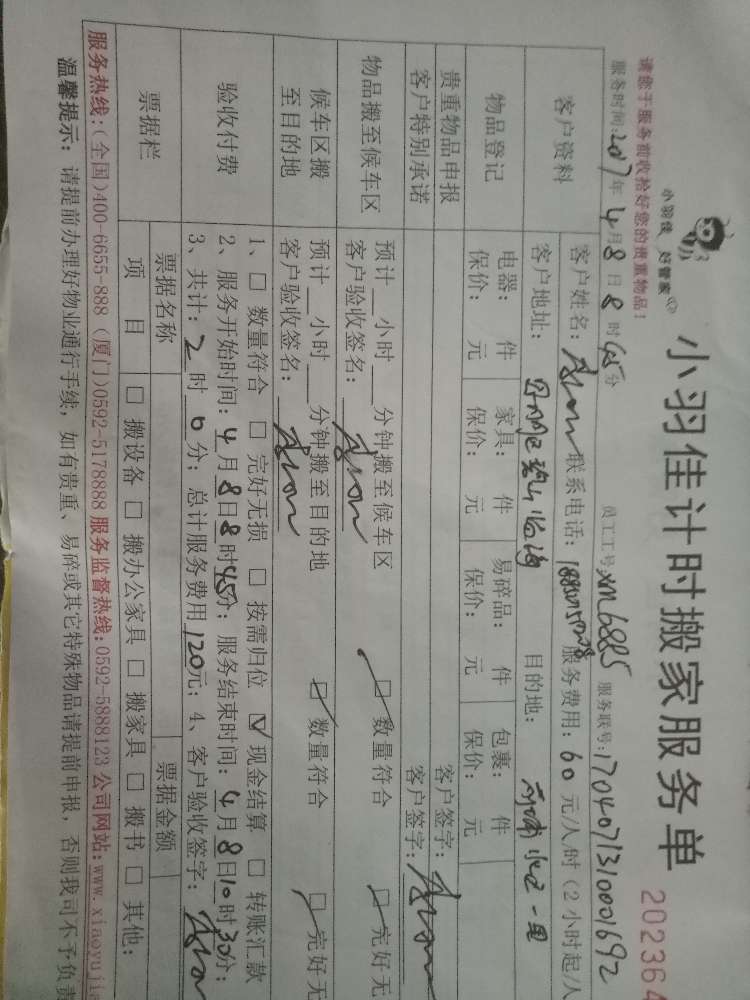 小羽佳 好管家
小羽佳计时搬家服务单
202364
请您于服务前收拾好您的贵重物品!
服务时间:2017年4月8日8时45分 员工工号:XM6885 服务联号:1704071310001692
客户资料
客户姓名: 联系电话: 服务费用:60元/人/时(2小时起/人
客户地址: 目的地:
物品登记
电器: 件 家具: 件 易碎品: 件 包裹: 件
保价: 元 保价: 元 保价: 元 保价: 元
贵重物品申报 客户签字:
客户特别承诺 客户签字:
物品搬至候车区
预计__小时__分钟搬至候车区 ☑ 数量符合 ☑ 完好无
客户验收签名:
候车区搬至目的地
预计__小时__分钟搬至目的地 ☑ 数量符合 ☑ 完好无
客户验收签名:
验收付费
1、☐ 数量符合 ☐ 完好无损 ☐ 按需归位 ☑ 现金结算 ☐ 转账汇款
2、服务开始时间:4月8日8时45分;服务结束时间:4月8日10时30分;
3、共计:2时0分;总计服务费用120元;4、客户验收签字:
票据栏
票据名称 票据金额
项目 ☐ 搬设备 ☐ 搬办公家具 ☐ 搬家具 ☐ 搬书 ☐ 其他:
服务热线:(全国)400-6655-888 (厦门)0592-5178888 服务监督热线:0592-5888123 公司网站:www.xiaoyujia
温馨提示:请提前办理好物业通行手续,如有贵重、易碎或其它特殊物品请提前申报,否则我司不予负责